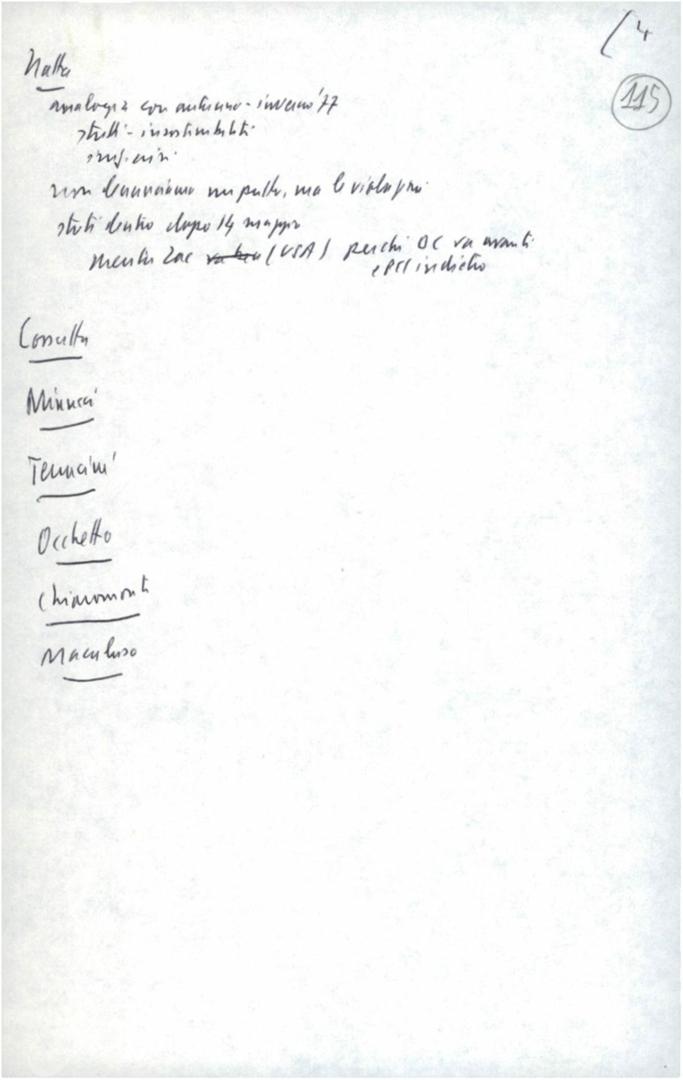 (4
115
Natta
analogia con autunno-inverno '77
non denunciamo un patto, ma le violazioni
stati dentro dopo 14 maggio
mentre Zac (USA) perché DC va avanti
e PCI indietro
Cossutta
Minucci
Terracini
Occhetto
Chiaromonte
Macaluso